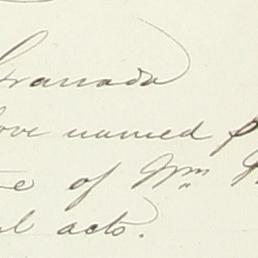 Granada
ove named
of Wm
acts.